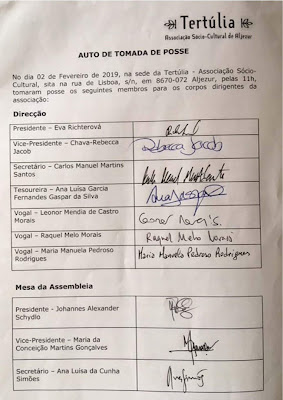 Tertúlia
Associação Sócio-Cultural de Aljezur
AUTO DE TOMADA DE POSSE
No dia 02 de Fevereiro de 2019, na sede da Tertúlia - Associação Sócio-
Cultural, sita na rua de Lisboa, s/n, em 8670-072 Aljezur, pelas 11h,
tomaram posse os seguintes membros para os corpos dirigentes da
associação:
Direcção
Presidente – Eva Richterová
Vice-Presidente – Chava-Rebecca
Jacob
Rebecca
Jacob
Secretário – Carlos Manuel Martins
Santos
Tesoureira – Ana Luísa Garcia
Fernandes Gaspar da Silva
Vogal – Leonor Mendia de Castro
Morais
Leonor Morais.
Vogal – Raquel Melo Morais
Raquel Melo Morais
Vogal – Maria Manuela Pedroso
Rodrigues
Maria Manuela Pedroso Rodrigues
Mesa da Assembleia
Presidente - Johannes Alexander
Schydlo
Vice-Presidente – Maria da
Conceição Martins Gonçalves
Secretário – Ana Luisa da Cunha
Simões